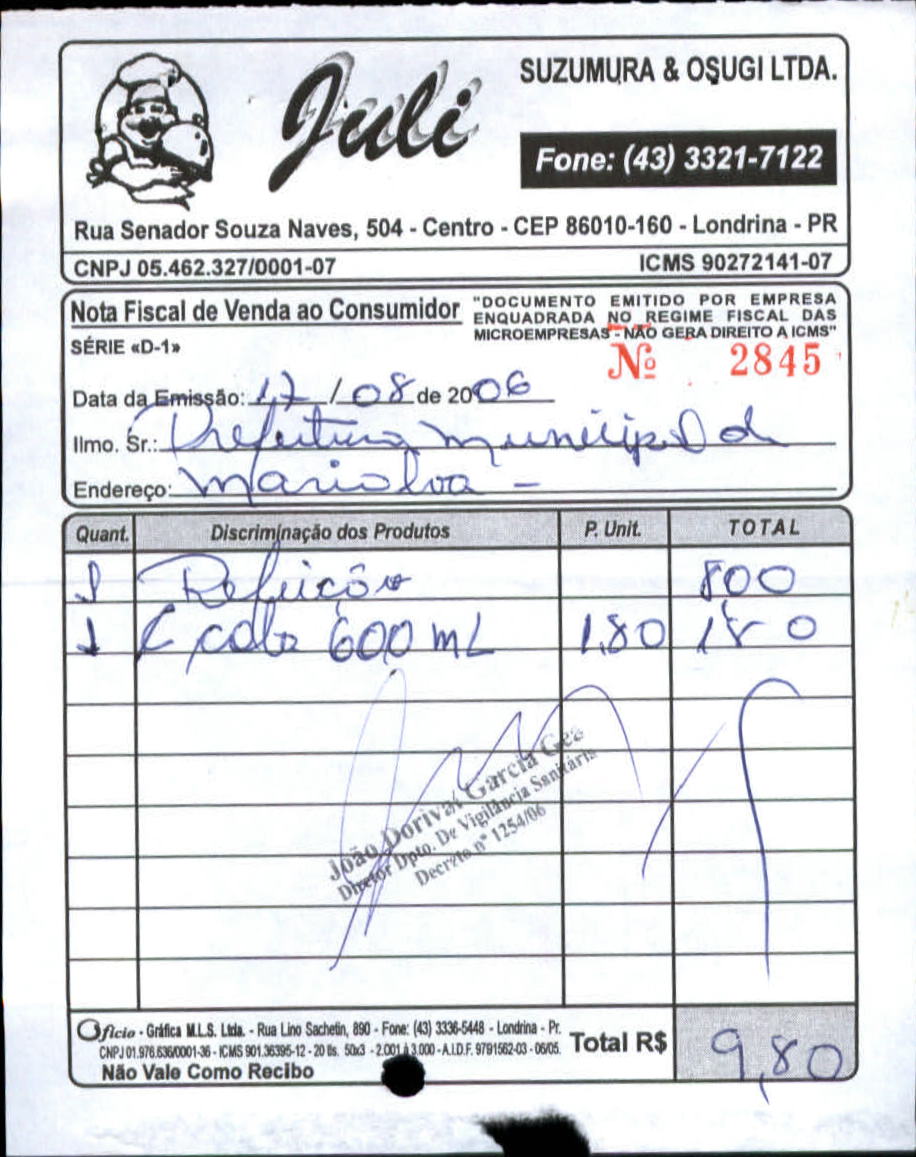 Juli
SUZUMURA & OSUGI LTDA.
Fone: (43) 3321-7122
Rua Senador Souza Naves, 504 - Centro - CEP 86010-160 - Londrina - PR
CNPJ 05.462.327/0001-07 ICMS 90272141-07
Nota Fiscal de Venda ao Consumidor
SÉRIE «D-1»
"DOCUMENTO EMITIDO POR EMPRESA
ENQUADRADA NO REGIME FISCAL DAS
MICROEMPRESAS - NÃO GERA DIREITO A ICMS"
Nº 2845
Data da Emissão: 17 / 08 de 2006
Ilmo. Sr.: Prefeitura municipal de
Endereço: Marialva -
Quant. Discriminação dos Produtos P. Unit. TOTAL
1 Refeição 800
1 600 mL 1,80 180
João Dorival Garcia Gea
Diretor Dpto. De Vigilância Sanitária
Decreto nº 1254/06
Ofício - Gráfica M.L.S. Ltda. - Rua Lino Sachetin, 890 - Fone: (43) 3336-5448 - Londrina - Pr.
CNPJ 01.976.636/0001-36 - ICMS 901.36395-12 - 20 tls. 50x3 - 2.001 à 3.000 - A.I.D.F. 9791562-03 - 06/05.
Não Vale Como Recibo
Total R$ 9,80